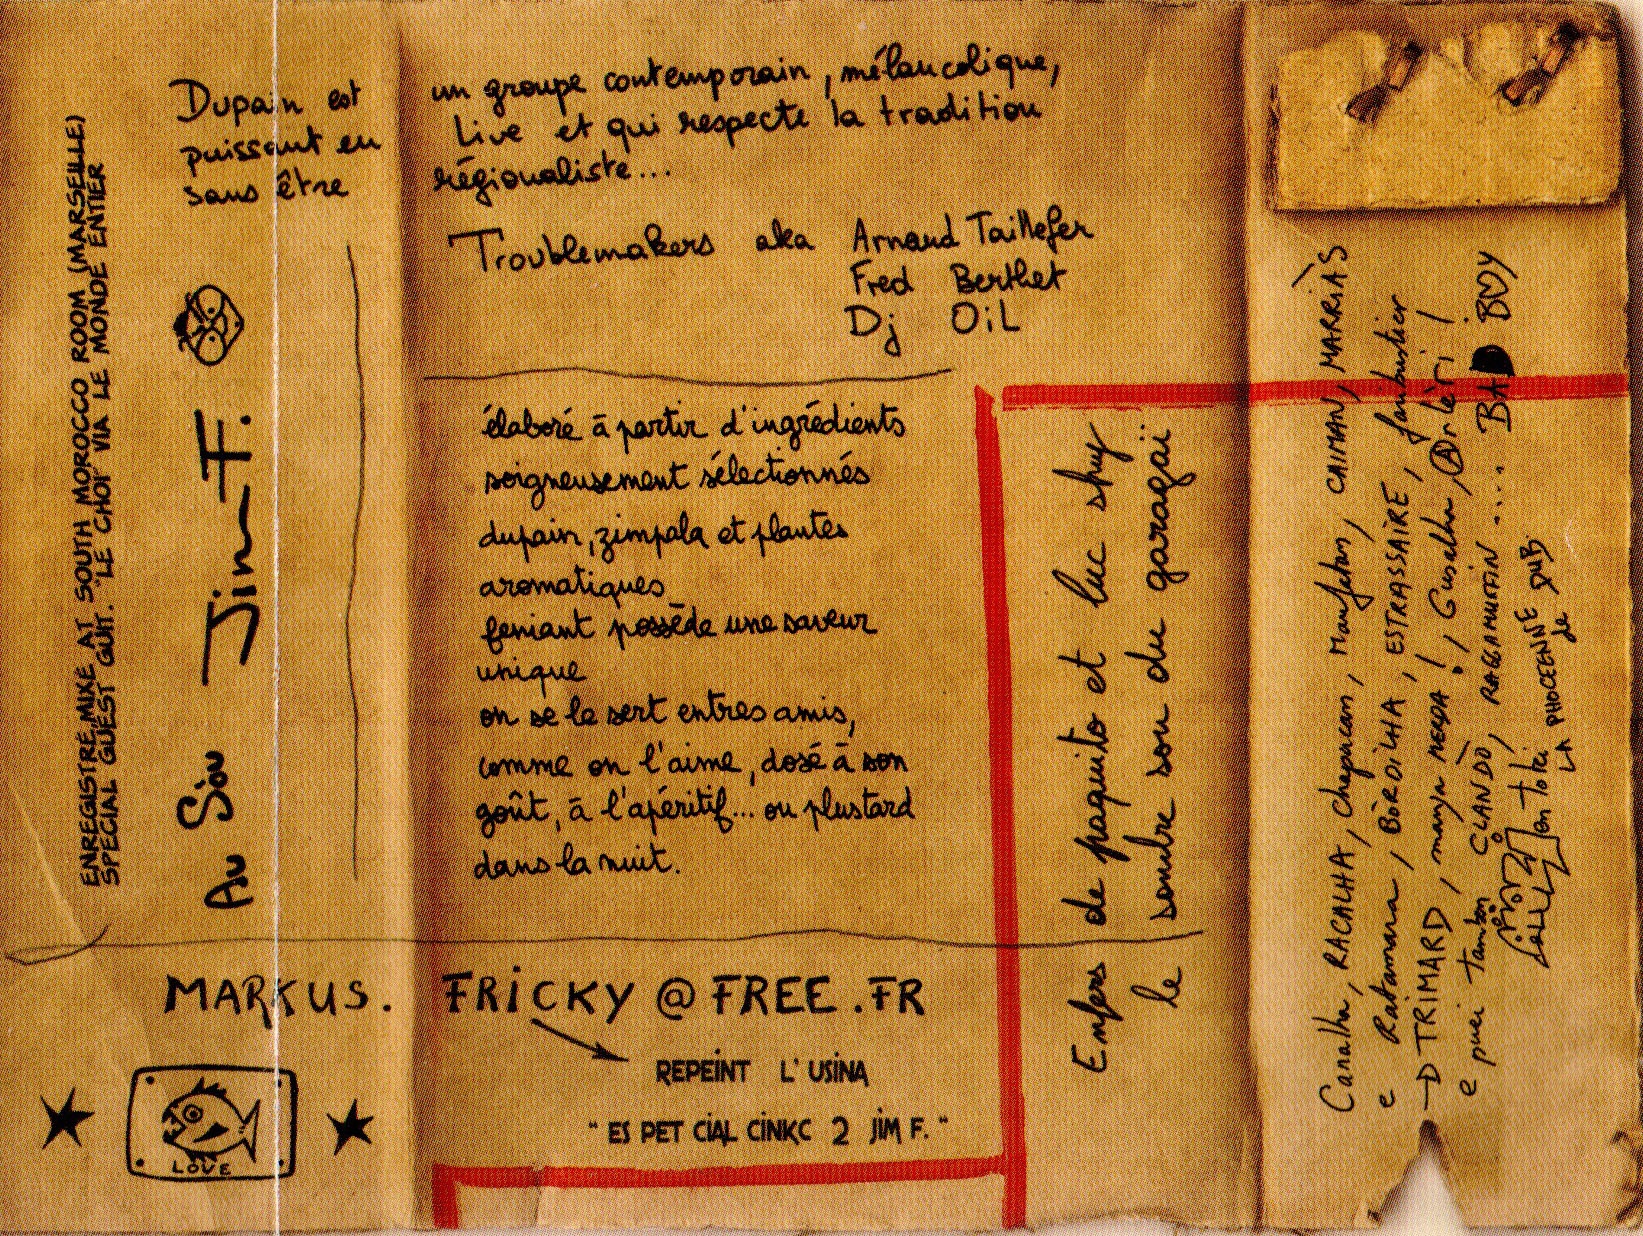 ENREGISTRE, MIXE AT SOUTH MOROCCO ROOM (MARSEILLE)
SPECIAL GUEST GUIT. "LE CHOI" VIA LE MONDE ENTIER
Dupain est
puissant en
sans être
Au Sòu Jim F.
un groupe contemporain, mélancolique,
Live et qui respecte la tradition
régionaliste...
Troublemakers aka Arnaud Taillefer
Fred Berthet
Dj OiL
élaboré à partir d'ingrédients
soigneusement sélectionnés
dupain, zimpala et plantes
aromatiques
feniant possède une saveur
unique
on se le sert entres amis,
comme on l'aime, dosé à son
goût, à l'apéritif... ou plustard
dans la nuit.
Enfers de paquito et luc shuy
le sombre son du garagaï
MARKUS. FRICKY @ FREE .FR
REPEINT L' USINA
" ES PET CIAL CINKC 2 JIM F. "
LOVE
Canalha, RACALHA, chapacan, Manjafam, CAIMAN, MARRIÀS
e Ratamana, BÒRDILHA, ESTRASSAÏRE,
TRIMARD, manja MERDA ! Gusalha, Arlèri !
e puei tamben CLANDÒ, RAGGAMUFFIN .... BAD BOY
LA PHOCEENNE DUB
de